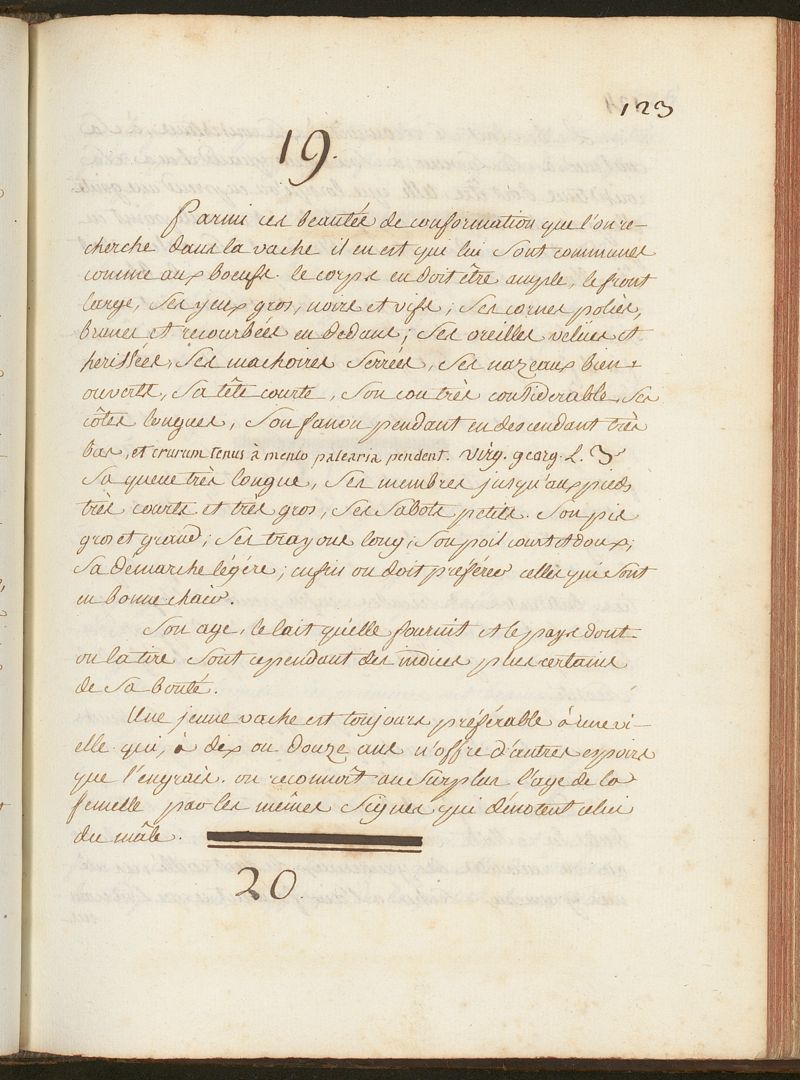 123
19.
Parmi ces beautés de conformation que l'on re-
cherche dans la vache il en est qui lui sont communes
comme aux boeufs. le corps en doit être ample, le front
large, ses yeux gros, noirs et vifs, ses cornes polies,
brunes et recourbées en dedans; ses oreilles velues et
herissées, ses machoires serrées, ses nazeaux bien
ouverts, sa tête courte, son cou très considerable, ses
côtes longues, son fanon pendant en descendant très
bas, et crurum tenus à mento palearia pendent. virg. georg. L. 3
sa queue très longue, ses membres jusqu'aux pieds
très courts et très gros, ses sabots petits. son pis
gros et grand; ses trayons long, son poil court et doux;
sa démarche légére; enfin on doit préférer celles qui sont
en bonne chair.
Son age, le lait qu'elle fournit et le pays dont
on la tire sont cependant des indices plus certains
de sa bonté.
Une jeune vache est toujours préférable à une vi-
elle qui, à dix ou douze ans n'offre d'autres espoirs
que l'engrais. on reconnoît au surplus l'age de la
femelle par les mêmes signes qui dénotent celui
du mâle.
20.